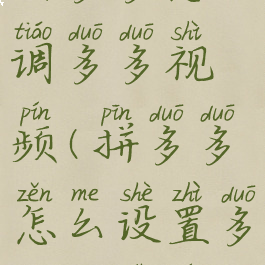 tiáo duō duō shì
调多多视
pín pīn duō duō
频(拼多多
zěn me shè zhì duō
怎么设置多